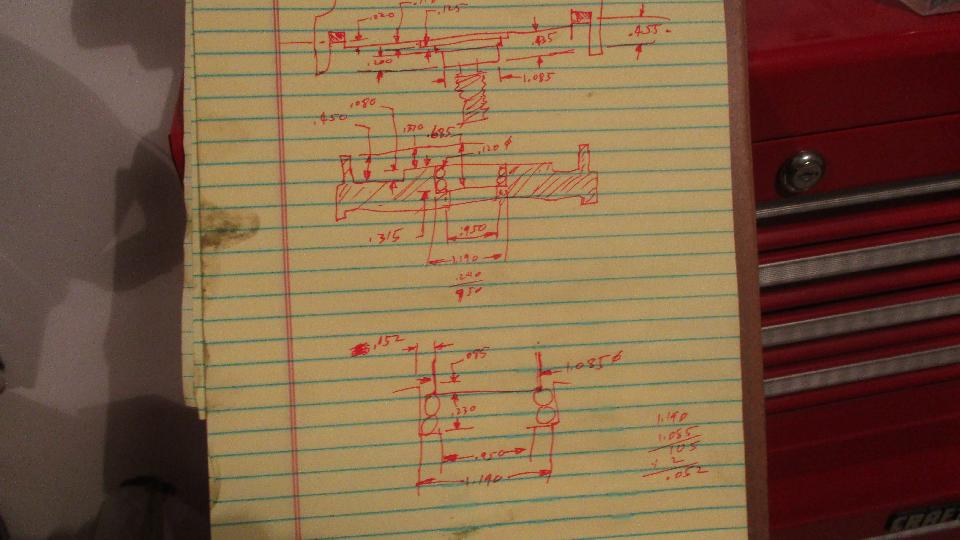 .020
.125
.435
.455
.200
1.085
.080
.450
.370
.685
.120 ϕ
.315
.950
1.190
.240
950
.152
.085
1.085 ϕ
.230
.950
1.190
1.190
1.085
105
÷ 2
.052
CRAF